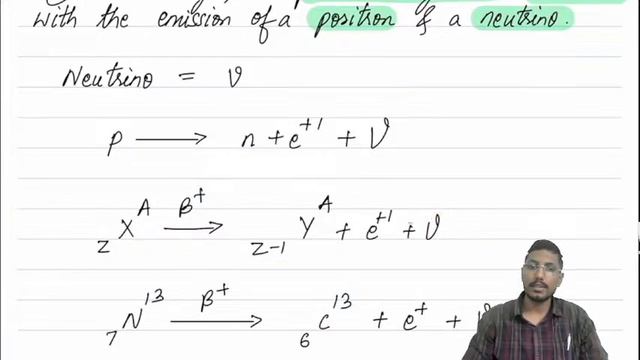 with the emission of a position & a neutrino.
Neutrino = ν
p ⟶ n + e⁺¹ + ν
zXᴬ β⁺⟶ z-1Yᴬ + e⁺¹ + ν
₇N¹³ β⁺⟶ ₆C¹³ + e⁺ +